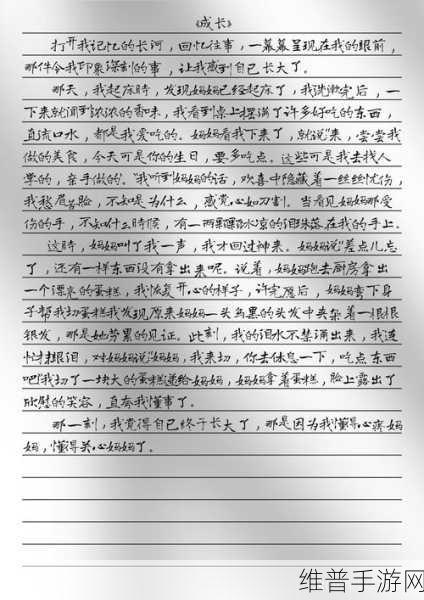 《成长》
打开我记忆的长河，回忆往事，一幕幕呈现在我的眼前，
那件令我印象深刻的事，让我感到自己长大了。
那天，我起床时，发现妈妈已经起床了，我洗漱完后，一
下来就闻到浓浓的香味，我看到桌上摆满了许多好吃的东西，
直流口水，都是我爱吃的。妈妈看我下来了，就说"来，尝尝我
做的美食，今天可是你的生日，要多吃点。这些可是我去找人
学的，亲手做的。"我听到妈妈的话，欢喜中隐藏着一丝丝忧伤，
我愁眉苦脸，不知是为什么，感觉心如刀割。当看见妈妈那受
伤的手，不知什么时候，有一两颗冰凉的泪珠落在我的手上。
这时，妈妈叫了我一声，我才回过神来。妈妈说"差点儿忘
了，还有一样东西没有拿出来呢。说着，妈妈跑去厨房拿出
一个漂亮的蛋糕，我恢复开心的样子，许完愿后，妈妈弯下身
子帮我切蛋糕我发现原来妈妈一头乌黑的头发中夹杂着一根根
银发，那是她劳累的见证。此刻，我的泪水不禁涌出来，我连
忙抹眼泪，对妈妈说"妈妈，我来切，你去休息一下，吃点东西
吧"我切了一块大的蛋糕递给妈妈，妈妈拿着蛋糕，脸上露出了
欣慰的笑容，直夸我懂事了。
那一刻，我觉得自己终于长大了，那是因为我懂得心疼妈
妈，懂得关心妈妈了。
维普手游网